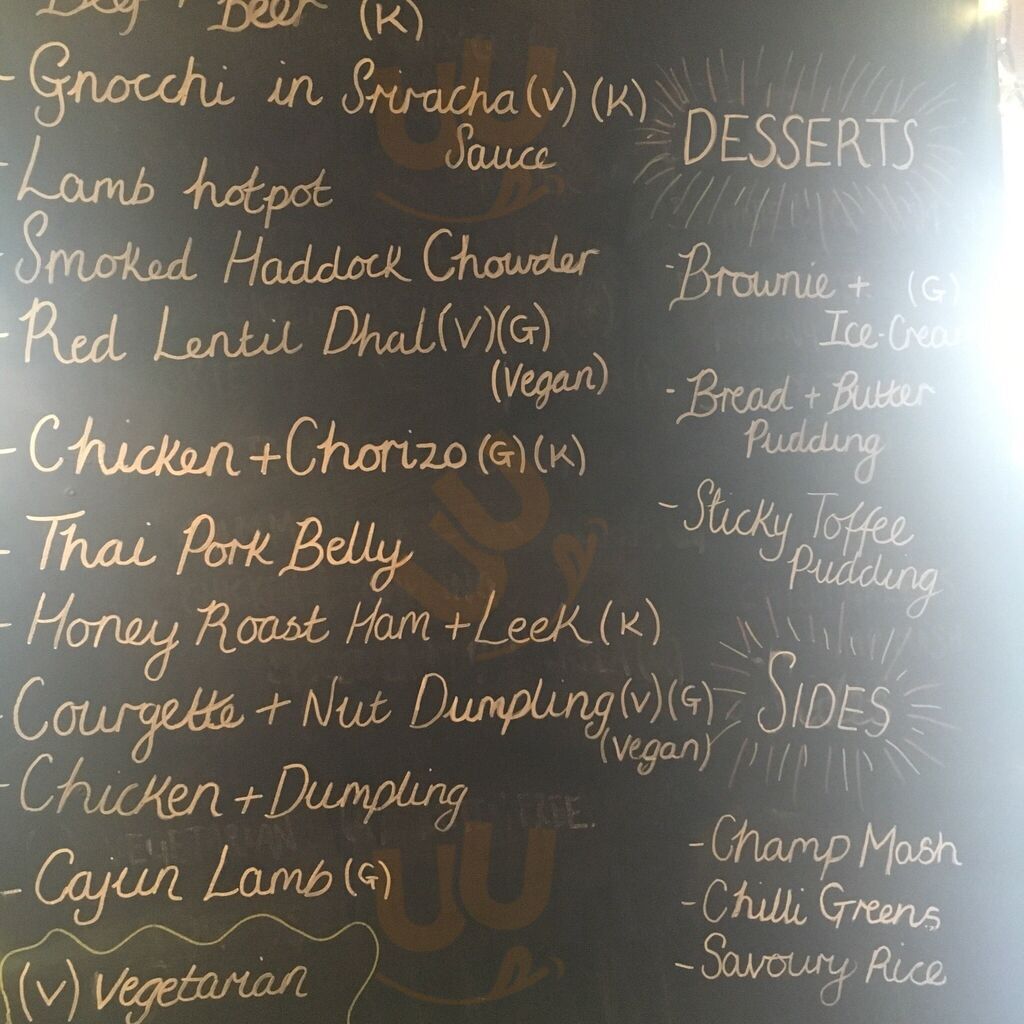 Beef + Beer (K)
- Gnocchi in Sriracha (V) (K)
Sauce
- Lamb hotpot
Smoked Haddock Chowder
- Red Lentil Dhal (V) (G)
(Vegan)
- Chicken + Chorizo (G) (K)
- Thai Pork Belly
- Honey Roast Ham + Leek (K)
- Courgette + Nut Dumpling (V) (G)
(Vegan)
- Chicken + Dumpling
- Cajun Lamb (G)
(V) Vegetarian
DESSERTS
- Brownie + (G)
Ice-Crea
- Bread + Butter
Pudding
- Sticky Toffee
Pudding
SIDES
- Champ Mash
- Chilli Greens
- Savoury Rice